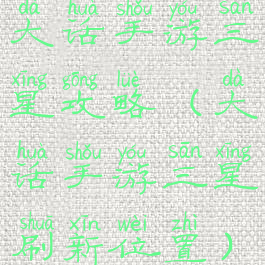 dà huà shǒu yóu sān
大话手游三
xīng gōng lüè dà
星攻略(大
huà shǒu yóu sān xīng
话手游三星
shuā xīn wèi zhì
刷新位置)